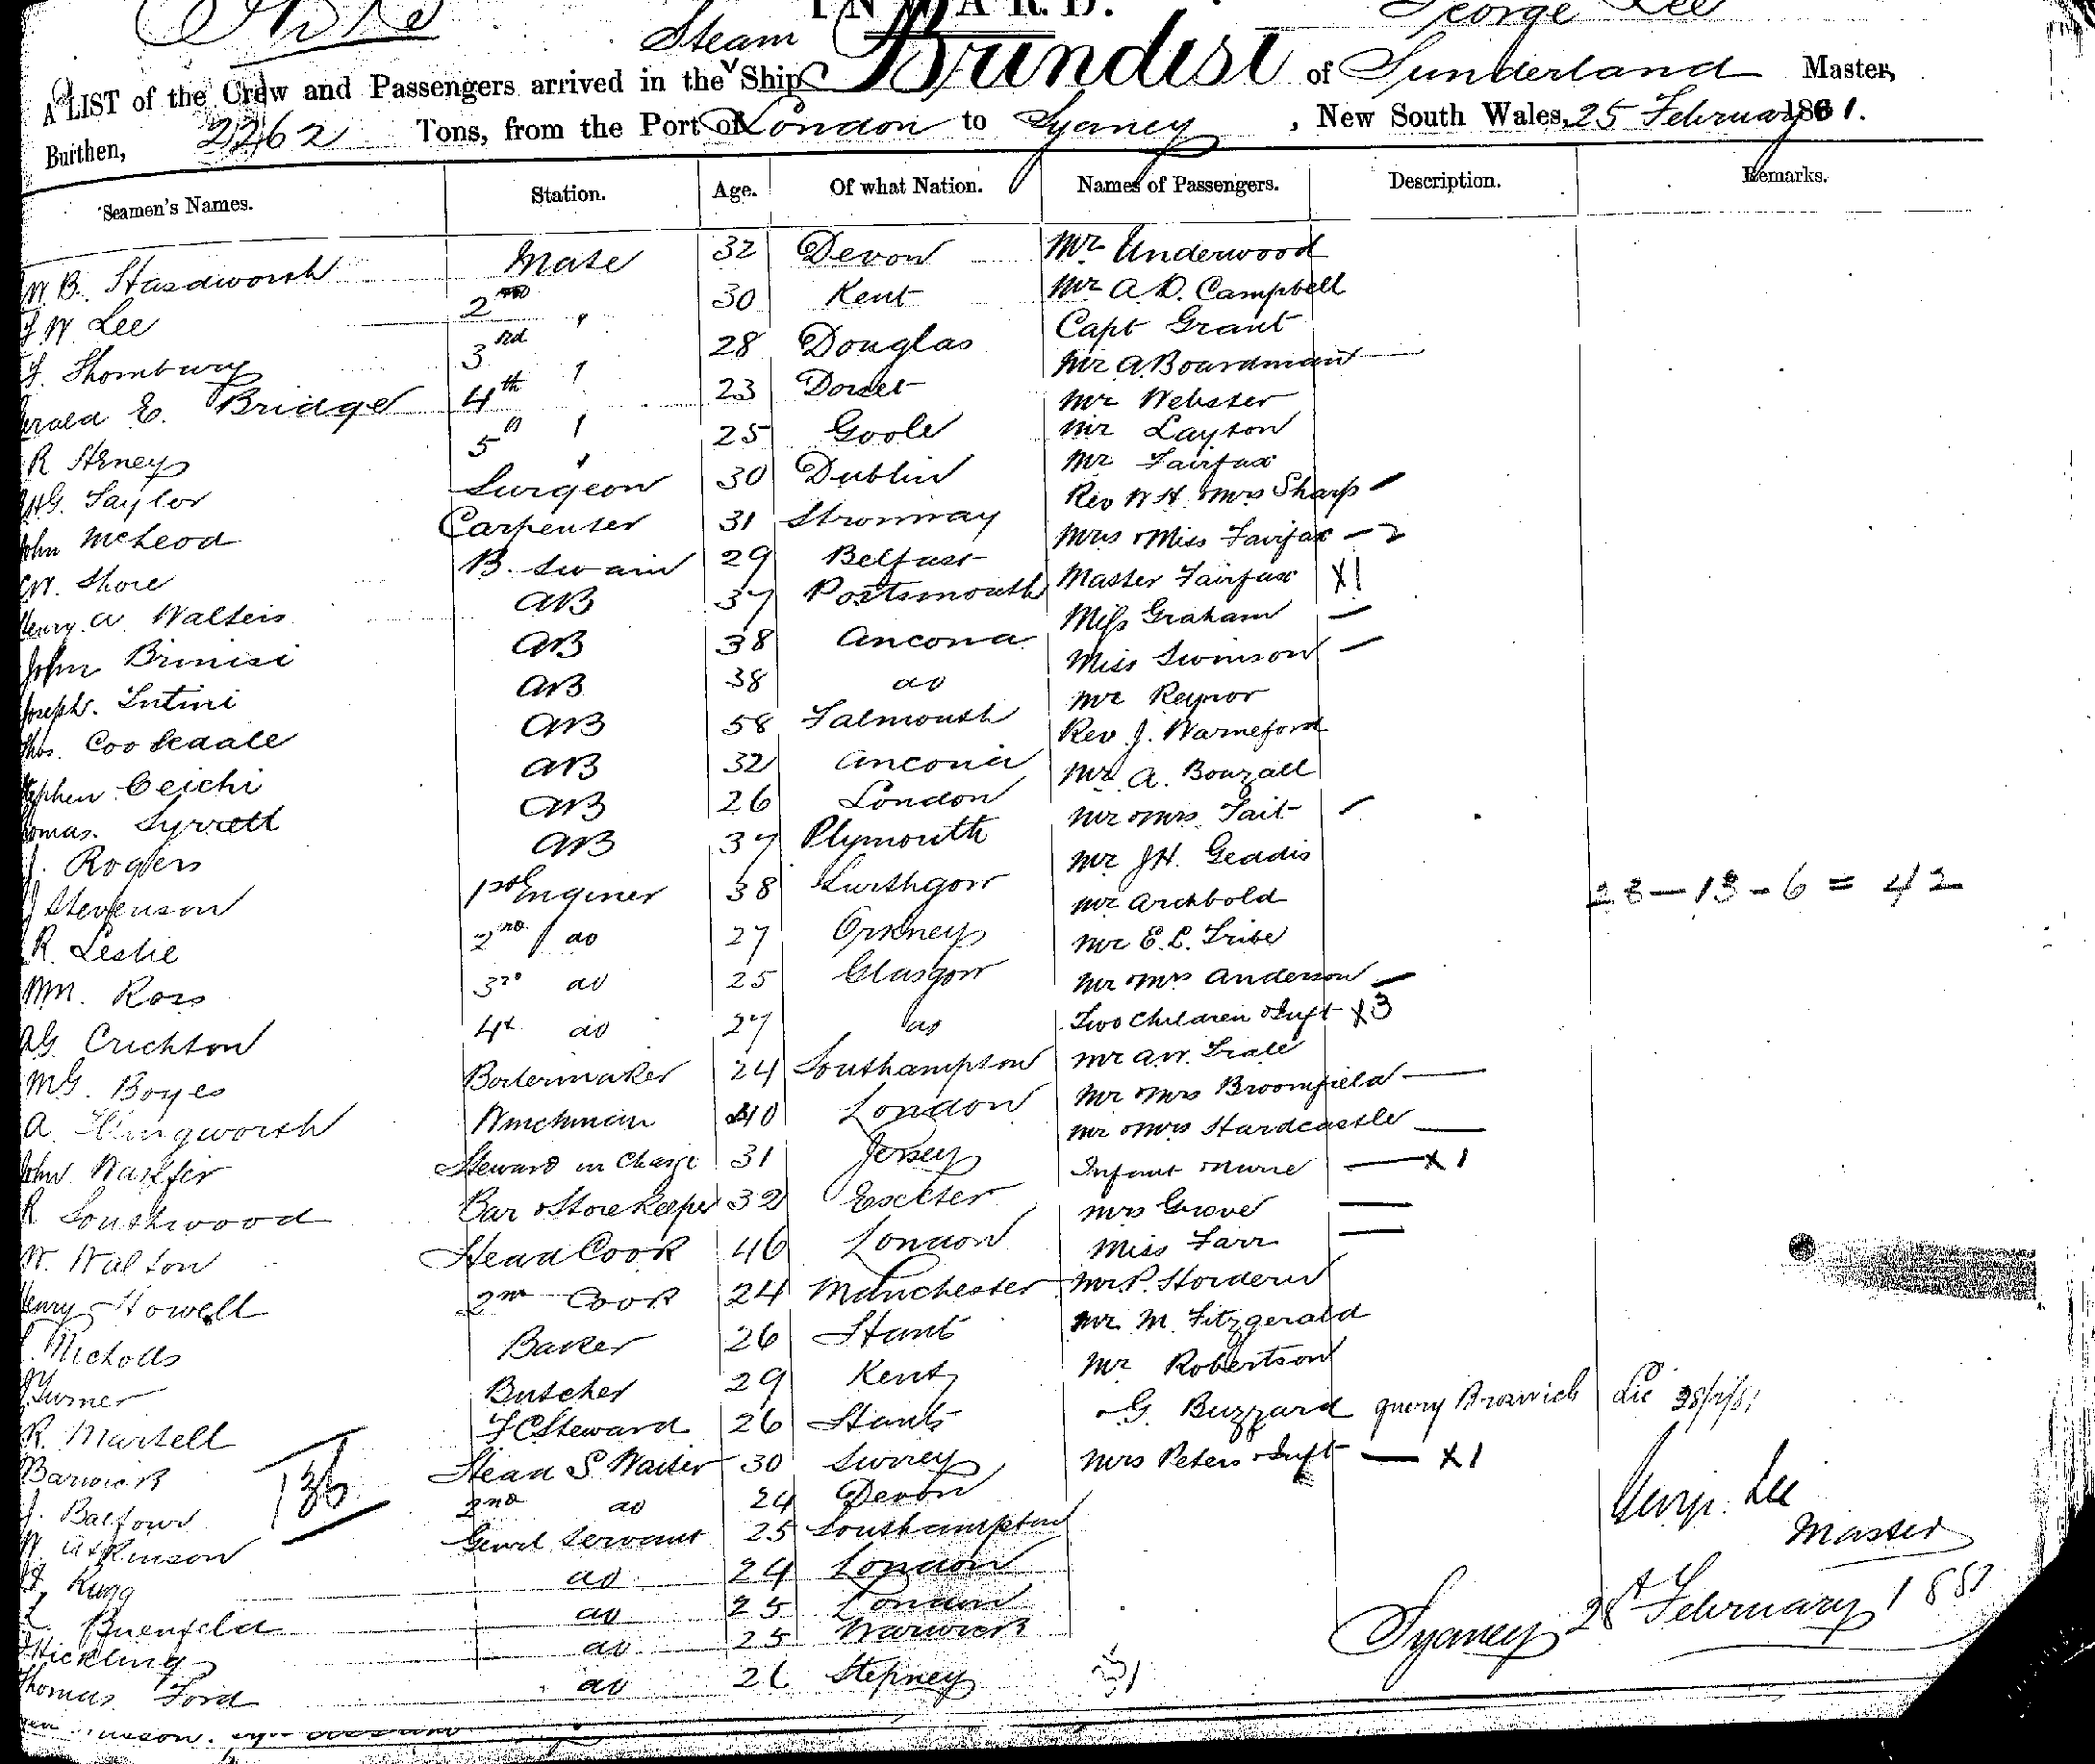 INWARD.
George Lee
A LIST of the Crew and Passengers arrived in the Steam Ship Brindisi of Sunderland Master,
Burthen, 2262 Tons, from the Port of London to Sydney, New South Wales, 25 February 1881.
Seamen's Names. Station. Age. Of what Nation. Names of Passengers. Description. Remarks.
W. B. Hardworth Mate 32 Devon Mr Underwood
F W Lee 2nd " 30 Kent Mr A. D. Campbell
F. Thornbury 3rd " 28 Douglas Capt Grant
Gerald E. Bridge 4th " 23 Dorset Mr A Boardman —
Mr Webster
R Harney 5th " 25 Goole Mr Layton
HG. Taylor Surgeon 30 Dublin Mr Fairfax
John McLeod Carpenter 31 Stronway Rev W H & Mrs Sharp —
W. Shore B. Swain 29 Belfast Mrs & Miss Fairfax — 2
Henry A Walters AB 37 Portsmouth Master Fairfax X1
John Brinisi AB 38 Ancona Miss Graham —
Joseph Intini AB 38 do Miss Swinson —
Thos. Cooksdale AB 58 Falmouth Mr Reynor
Stephen Ceichi AB 32 Ancona Rev J. Warneford
Thomas Syrrett AB 26 London Mr A. Bouzall
J. Rogers AB 37 Plymouth Mr & Mrs Tait —
J Stevenson 1st Enginer 38 Linthgow Mr J H. Geddis
R. Leslie 2nd do 27 Orkney Mr Archbold 23 — 13 - 6 = 42
Wm. Ross 3rd do 25 Glasgow Mr E. L. Tribe
AG. Crichton 4th do 27 do Mr & Mrs Anderson —
Two Children & Inft X3
MG. Boyes Boilermaker 24 Southampton Mr A W. Trale
A Illingworth Winchman 40 London Mr & Mrs Broomfield —
John Steward in Charge 31 Jersey Mr & Mrs Hardcastle —
R Southwood Bar & Storekeeper 32 Exeter Infant & Nurse — X1
W. Walton Head Cook 46 London Mrs Grover —
Henry Howell 2nd Cook 24 Manchester Miss Farr —
Nicholls Baker 26 Hants Mr P. Hordern
J Turner Butcher 29 Kent Mr M. Fitzgerald
R. Martell F C Steward 26 Hants Mr Robertson
Barwick Head S Waiter 30 Surrey & G. Buzzard query Broswick
J. Balfour 2nd do 24 Devon Mrs Peters & Inft — X1
W Atkinson Genrl Servant 25 Southampton
H. Rugg do 24 London
L Buenfeld do 25 London
Hickling do 25 Warwick
Thomas Ford do 26 Stepney
136
31
George Lee
Master
Sydney 28th February 1881